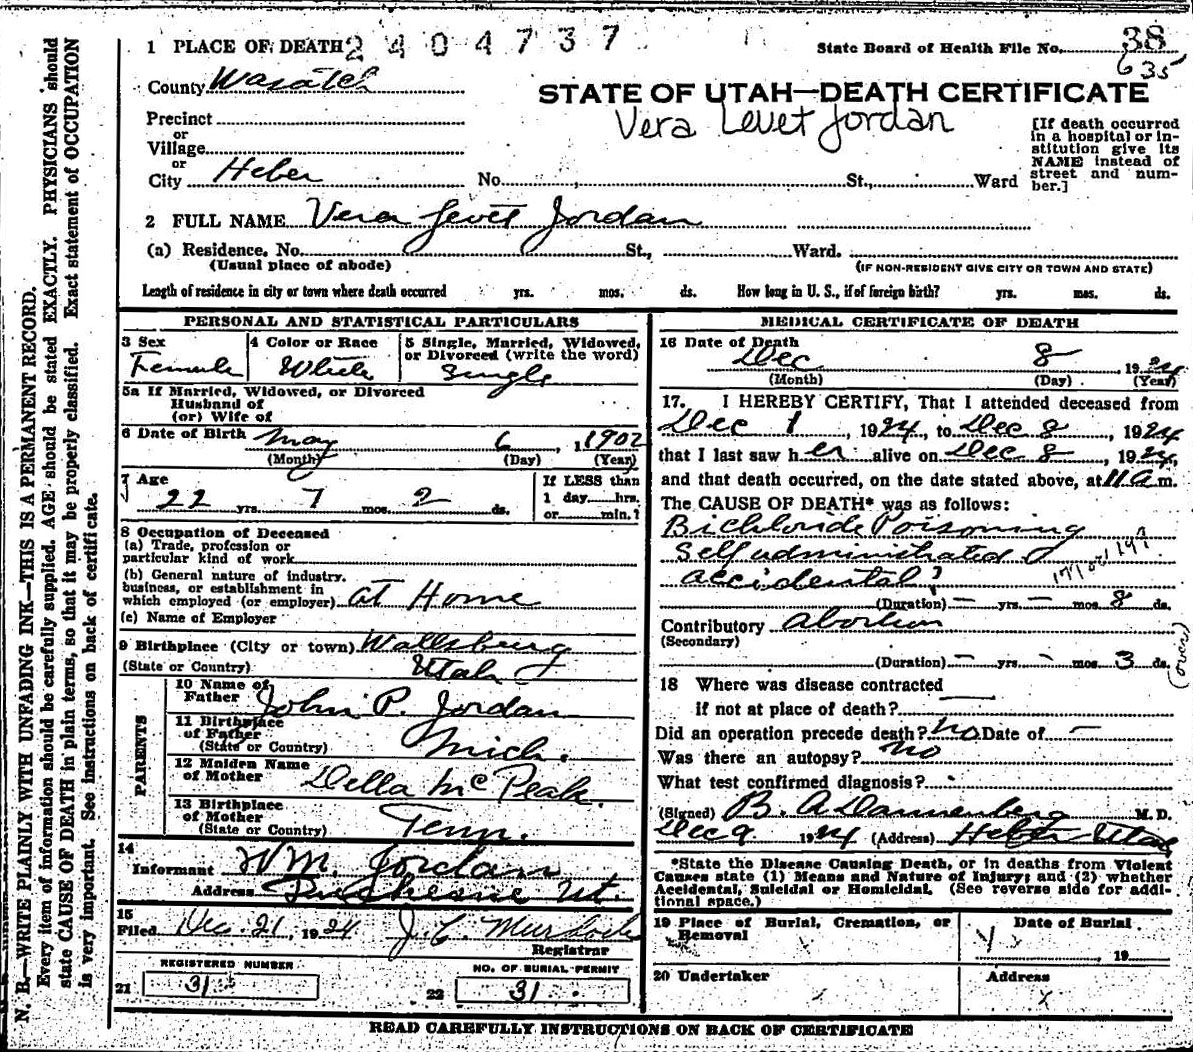 1 PLACE OF DEATH 2404737
State Board of Health File No. 38
635
County Wasatch
STATE OF UTAH—DEATH CERTIFICATE
Vera Levet Jordan
Precinct
or
Village
or
City Heber No. , St., Ward
[If death occurred
in a hospital or in-
stitution give its
NAME instead of
street and num-
ber.]
2 FULL NAME Vera Levet Jordan
(a) Residence. No. St., Ward.
(Usual place of abode)
(IF NON-RESIDENT GIVE CITY OR TOWN AND STATE)
Length of residence in city or town where death occurred yrs. mos. ds. How long in U. S., if of foreign birth? yrs. mos. ds.
PERSONAL AND STATISTICAL PARTICULARS
3 Sex
Female
4 Color or Race
White
5 Single, Married, Widowed,
or Divorced (write the word)
Single
5a If Married, Widowed, or Divorced
Husband of
(or) Wife of
6 Date of Birth May 6, 1902
(Month) (Day) (Year)
7 Age
22 yrs. 7 mos. 2 ds.
If LESS than
1 day hrs.
or min.?
8 Occupation of Deceased
(a) Trade, profession or
particular kind of work
(b) General nature of industry,
business, or establishment in
which employed (or employer) at Home
(c) Name of Employer
9 Birthplace (City or town) Wallsburg
(State or Country) Utah
PARENTS
10 Name of
Father John P. Jordan
11 Birthplace
of Father
(State or Country) Mich.
12 Maiden Name
of Mother Della McPeak.
13 Birthplace
of Mother
(State or Country) Tenn.
14
Informant Wm. Jordan
Address Duchesne Ut.
15
Filed Dec. 21, 1924 J. C. Murdock
Registrar
REGISTERED NUMBER
21 31
NO. OF BURIAL PERMIT
22 31
MEDICAL CERTIFICATE OF DEATH
16 Date of Death
Dec 8, 1924
(Month) (Day) (Year)
17. I HEREBY CERTIFY, That I attended deceased from
Dec 1, 1924, to Dec 8, 1924
that I last saw her alive on Dec 8, 1924,
and that death occurred, on the date stated above, at 11 a m.
The CAUSE OF DEATH* was as follows:
Bichloride Poisoning
Self administrated
accidental?
(Duration) — yrs — mos 8 ds.
Contributory Abortion
(Secondary)
(Duration) — yrs. — mos 3 ds.
(over)
18 Where was disease contracted
if not at place of death?
Did an operation precede death? No. Date of —
Was there an autopsy? No
What test confirmed diagnosis?
(Signed) B. A. Dannenberg M. D.
Dec 9 1924 (Address) Heber Utah
*State the Disease Causing Death, or in deaths from Violent
Causes state (1) Means and Nature of Injury; and (2) whether
Accidental, Suicidal or Homicidal. (See reverse side for addi-
tional space.)
19 Place of Burial, Cremation, or
Removal
Date of Burial
19
20 Undertaker
Address
x
READ CAREFULLY INSTRUCTIONS ON BACK OF CERTIFICATE
N. B.—WRITE PLAINLY WITH UNFADING INK—THIS IS A PERMANENT RECORD.
Every item of information should be carefully supplied. AGE should be stated EXACTLY. PHYSICIANS should
state CAUSE OF DEATH in plain terms, so that it may be properly classified. Exact statement of OCCUPATION
is very important. See instructions on back of certificate.